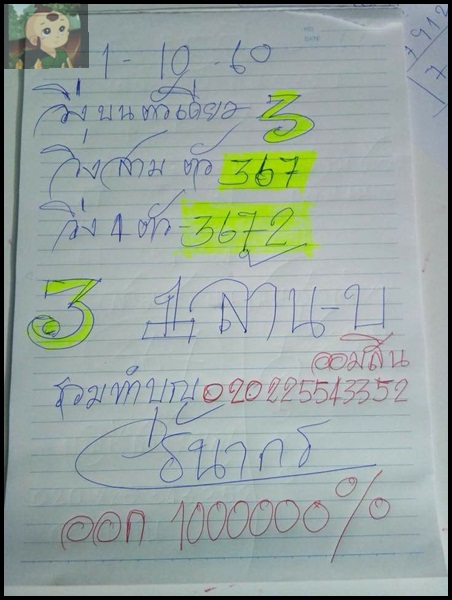 1 - 10 - 60
วิ่งบนตัวเดียว 3
วิ่งสาม ตัว 367
วิ่ง 4 ตัว-3672
3 1 ล้าน-บ
ออมสิน
รวมทำบุญ 020225543352
ธนากร
ออก 1000000%
912
7